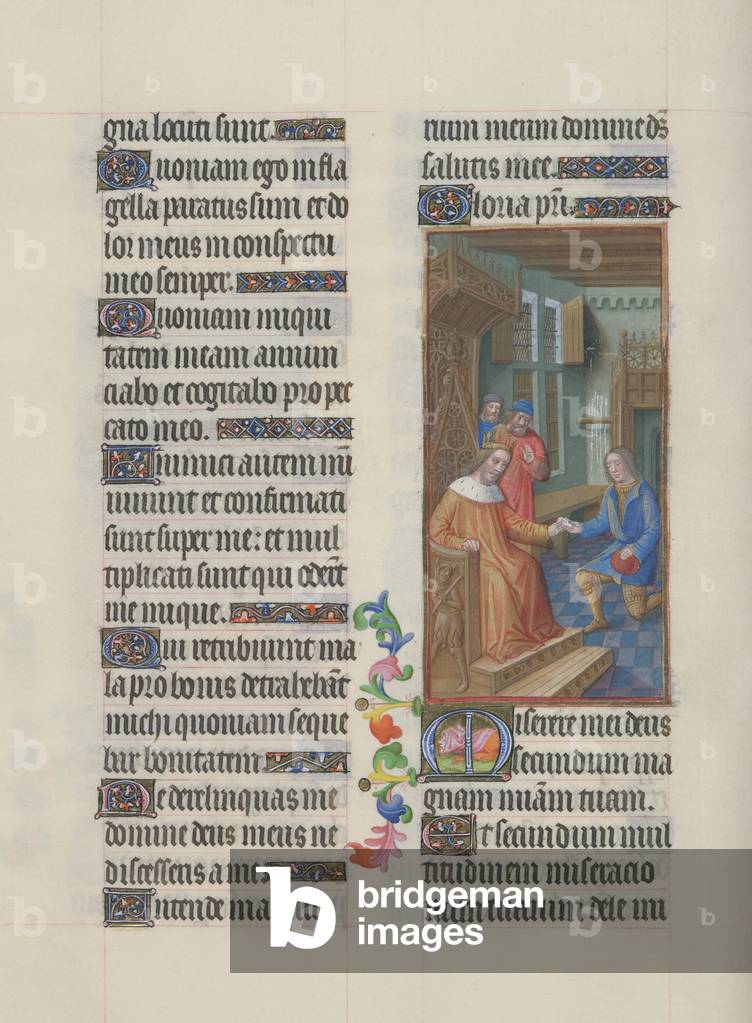 gna locuti sunt.
Quoniam ego in fla
gella paratus sum et do
lor meus in conspectu
meo semper.
Quoniam iniqui
tatem meam annun
ciabo et cogitabo pro pec
cato meo.
Inimici autem mei
vivunt et confirmati
sunt super me: et mul
tiplicati sunt qui oderunt
me inique.
Qui retribuunt ma
la pro bonis detrahebant
michi quoniam seque
bar bonitatem.
Ne derelinquas me
domine deus meus ne
discesseris a me.
Intende in
rium meum domine ds
salutis mee.
Gloria pri.
Miserere mei deus
secundum ma
gnam miam tuam.
Et secundum mul
titudinem miseracio
num tuarum: dele ini
b bridgeman
images